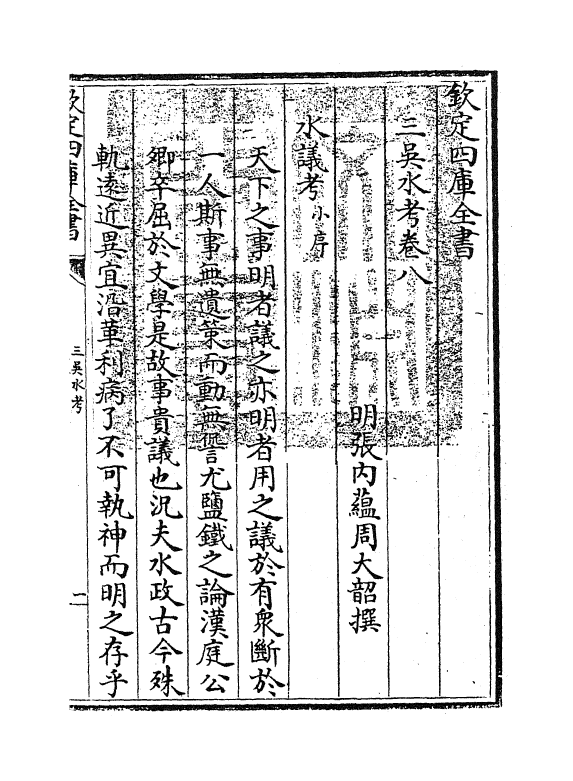 欽定四庫全書
三吳水考卷八
明張內蘊周大韶撰
水議考小序
天下之事明者議之亦明者用之議於有衆斷於
一人斯事無遺策而動無諐尤鹽鐵之論漢庭公
卿卒屈於文學是故事貴議也況夫水政古今殊
軌遠近異宜沿革利病了不可執神而明之存乎
欽定四庫全書
三吳水考